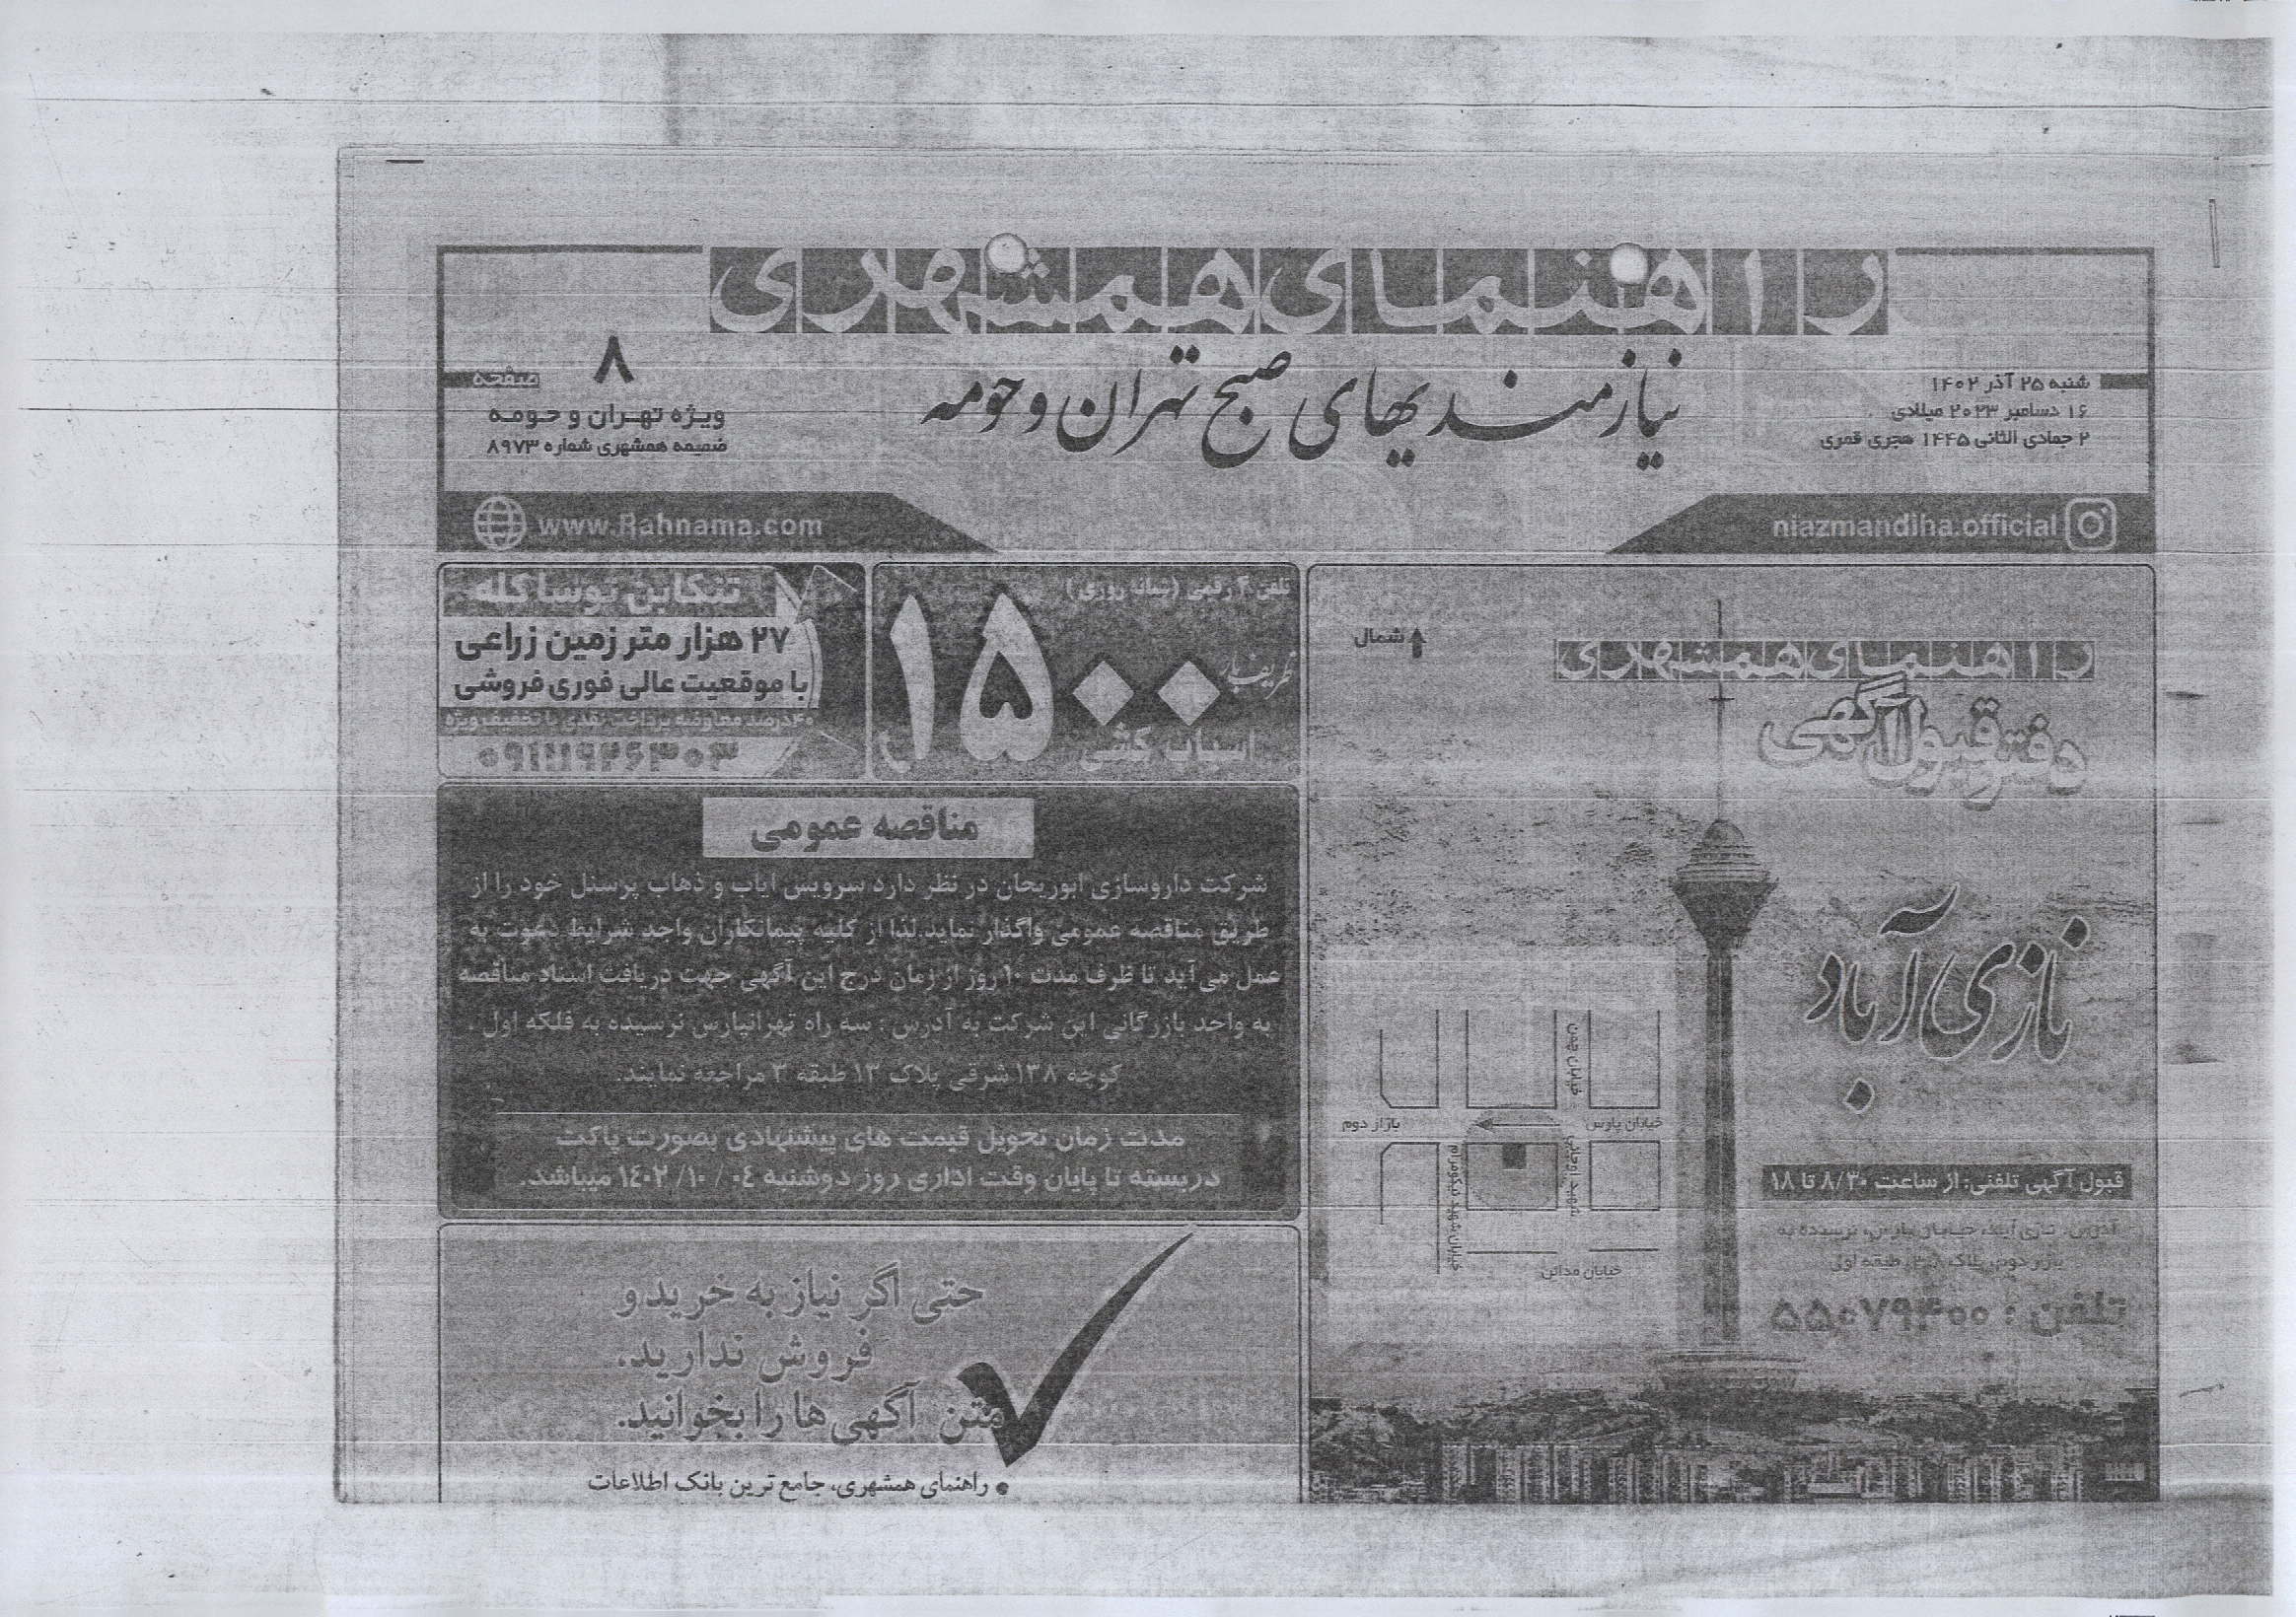 راهنمای همشهری
نیازمندیهای صبح تهران و حومه
شنبه ۲۵ آذر ۱۴۰۲
۱۶ دسامبر ۲۰۲۳ میلادی
۲ جمادی الثانی ۱۴۴۵ هجری قمری
۸ صفحه
ویژه تهران و حومه
ضمیمه همشهری شماره ۸۹۷۳
niazmandiha.official
www.Rahnama.com
شمال
راهنمای همشهری
دفتر قبول آگهی
نازی آباد
خیابان پارس
بازار دوم
خیابان مدائن
قبول آگهی تلفنی: از ساعت ۸/۳۰ تا ۱۸
آدرس: نازی آباد، خیابان پارس، نرسیده به
بازار دوم، پلاک طبقه اول
تلفن : ۵۵۰۷۹۴۰۰
تلفن ۴ رقمی (شبانه روزی)
ظریف بار
۱۵۰۰
اسباب کشی
تنکابن توساکله
۲۷ هزار متر زمین زراعی
با موقعیت عالی فوری فروشی
۴۰درصد معاوضه پرداخت نقدی با تخفیف ویژه
۰۹۱۱۱۹۲۶۳۰۳
مناقصه عمومی
شرکت داروسازی ابوریحان در نظر دارد سرویس ایاب و ذهاب پرسنل خود را از
طریق مناقصه عمومی واگذار نماید.لذا از کلیه پیمانکاران واجد شرایط دعوت به
عمل می آید تا ظرف مدت ۱۰ روز از زمان درج این آگهی جهت دریافت اسناد مناقصه
به واحد بازرگانی این شرکت به آدرس : سه راه تهرانپارس نرسیده به فلکه اول .
کوچه ۱۳۸ شرقی پلاک ۱۳ طبقه ۳ مراجعه نمایند.
مدت زمان تحویل قیمت های پیشنهادی بصورت پاکت
دربسته تا پایان وقت اداری روز دوشنبه ۰۴ / ۱۰/ ۱۴۰۲ میباشد.
حتی اگر نیاز به خرید و
فروش ندارید،
متن آگهی‌ها را بخوانید.
• راهنمای همشهری، جامع ترین بانک اطلاعات